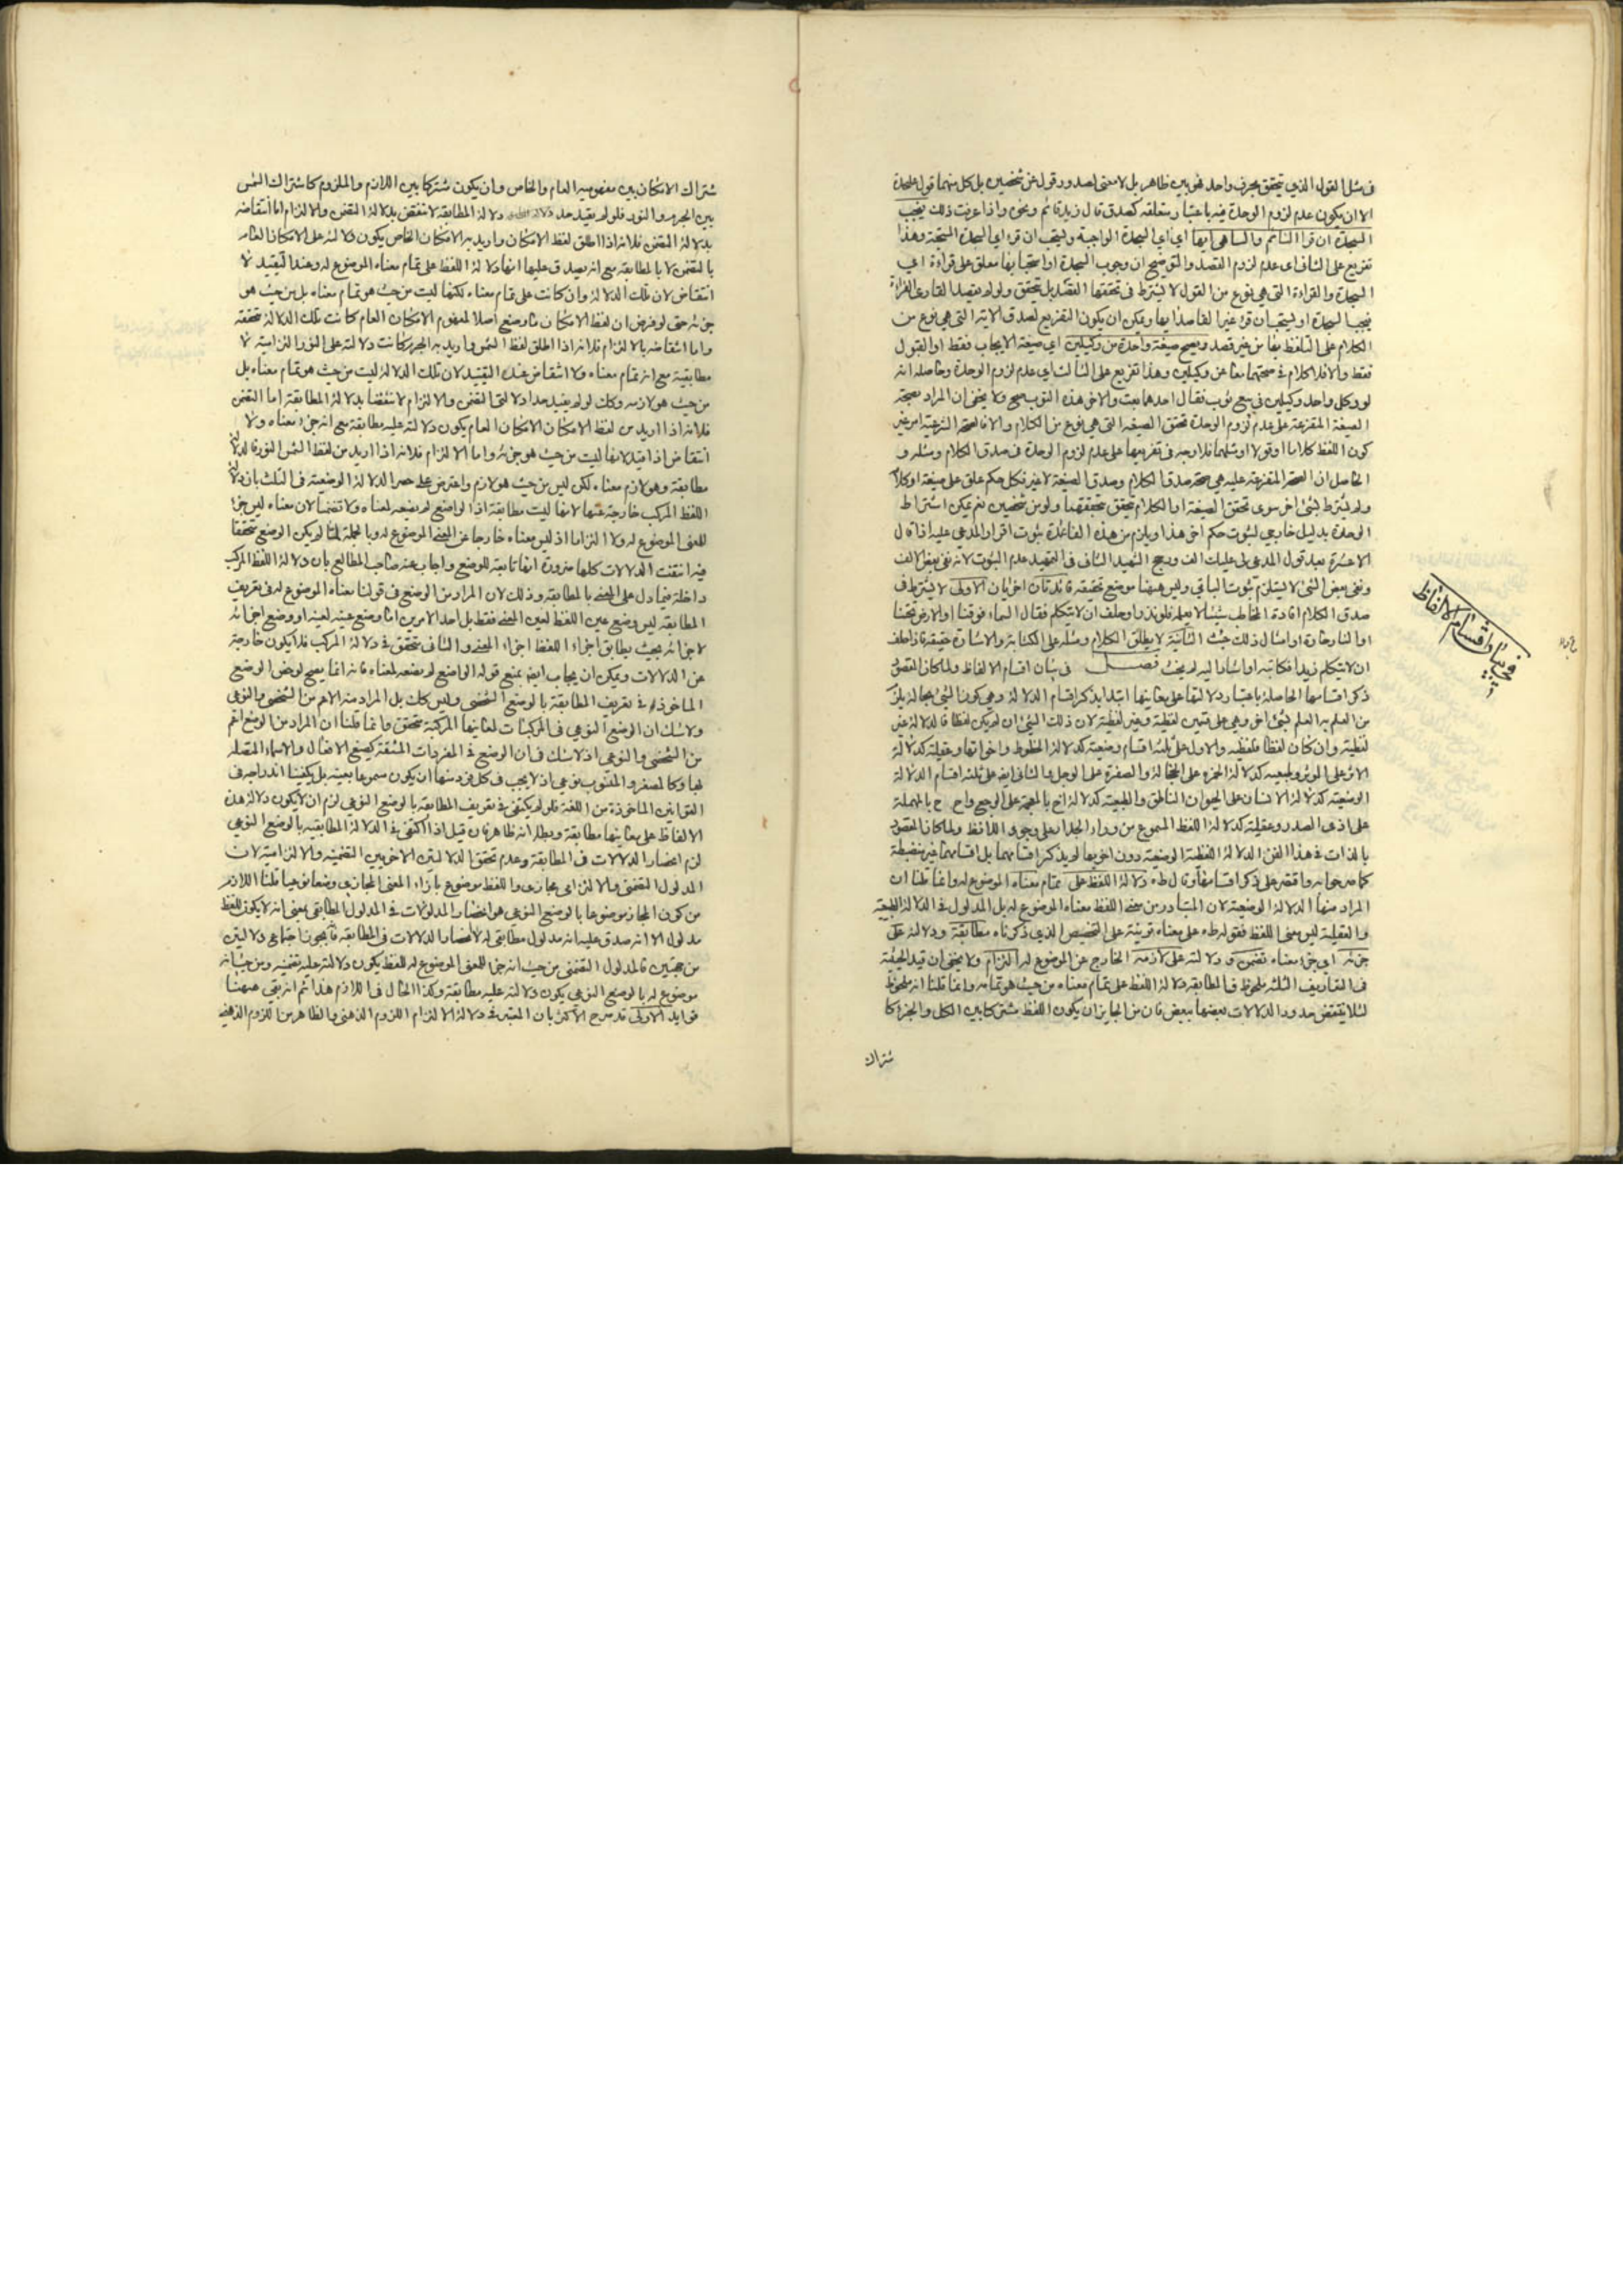 في مثل القول الذي يتحقق بحرف واحد فهو بين ظاهر بل لا معنى لصدور قول عن شخصين بل كل منهما قول علىحدة
الا ان يكون عدم لزوم الوحدة فيه باعتبار متعلقه كصدق قال زيد قائم ونحوه واذا عرفت ذلك فيجب
السجدة ان قرأ النائم والساهي ايها اي اي السجدة الواجبة ويستحب ان قرء اي السجدة المستحبة وهذا
تفريع على الثاني اي عدم لزوم القصد والتوضيح ان وجوب السجدة او استحبابها معلق على قراءة اي
السجدة والقراءة التي هي نوع من القول لا يشترط في تحققها القصد بل يتحقق ولو لم يقصد القاري القراءة
فيجب السجدة او يستحب ان قرء غير القاصد ايها ويمكن ان يكون التفريع لصدق الاية التي هي نوع من
الكلام على التلفظ بها من غير قصد ويصح صيغة واحدة من وكيلين اي صيغة الايجاب فقط او القبول
فقط والا فلا كلام في صحتهما معا عن وكيلين وهذا تفريع على الثالث اي عدم لزوم الوحدة وحاصله انه
لو وكل واحد وكيلين في بيع ثوب فقال احدهما بعت والاخر هذه الثوب يصح ولا يخفى ان المراد بصحة
الصيغة المتفرعة على عدم لزوم الوحدة تحقق الصيغة التي هي نوع من الكلام والا فالصحة الشرعية امر غير
كون اللفظ كلاما او قولا او مثلهما فلا وجه في تفريعها على عدم لزوم الوحدة في صدق الكلام ومثله و
الحاصل ان الصحة المتفرعة عليه هي صحة صدق الكلام وصدق الصيغة لا غير فكل حكم علق على صيغة او كلام
ولم يشترط بشئ اخر سوى تحقق الصيغة او الكلام يتحقق بتحققهما ولو من شخصين نعم يمكن اشتراط
الوحدة بدليل خارجي لثبوت حكم اخر هذا ويلزم من هذه القاعدة ثبوت اقرار المدعى عليه اذا قال
الا عشرة بعد قول المدعي لي عليك الف ورجح الشهيد الثاني في التمهيد عدم الثبوت لانه نفي بعض الالف
ونفي بعض الشئ لا يستلزم ثبوت الباقي وليس هيهنا موضع تحقيقه فائدتان اخريان الاولى لا يشترط في
صدق الكلام افادة المخاطب شيئا لا يعلمه فلو نذر او حلف ان لا يتكلم فقال السماء فوقنا او الارض تحتنا
او النار حارة او امثال ذلك حنث الثانية لا يطلق الكلام ومثله على الكتابة والاشارة حقيقة فاذا حلف
ان لا يتكلم زيدا فكاتبه او اشار اليه لم يحنث فصل في بيان اقسام الالفاظ ولما كان المقصود
ذكر اقسامها الحاصلة باعتبار دلالتها على معانيها ابتدا بذكر اقسام الدلالة وهي كون الشئ بحالة يلزم
من العلم به العلم بشئ اخر وهي على قسمين لفظية وغير لفظية لان ذلك الشئ ان لم يكن لفظا فالدلالة غير
لفظية وان كان لفظا فلفظية والاول على ثلثة اقسام وضعية كدلالة الخطوط واخواتها وعقلية كدلالة
الاثر على المؤثر وطبيعية كدلالة الحمرة على الخجالة والصفرة على الوجل والثاني ايضا على ثلثة اقسام الدلالة
الوضعية كدلالة الانسان على الحيوان الناطق والطبيعية كدلالة اخ بالمعجمة على الوجع واح اح بالمهملة
على اذى الصدر وعقلية كدلالة اللفظ المسموع من وراء الجدار على وجود اللافظ ولما كان المقصود
بالذات في هذا الفن الدلالة اللفظية الوضعية دون اخويها لم يذكر اقسامهما بل اقسامهما غير منضبطة
كما صرحوا به واقتصر على ذكر اقسامها وقال طه دلالة اللفظ على تمام معناه الموضوع له وانما قلنا ان
المراد منها الدلالة الوضعية لان المتبادر من معنى اللفظ معناه الموضوع له بل المدلول في الدلالة الطبيعية
والعقلية ليس معنى اللفظ فقوله طه على معناه قرينة على التخصيص الذي ذكرناه مطابقة ودلالته على
جزئه اي جزء معناه تضمن ودلالته على لازمه الخارج عن الموضوع له التزام ولا يخفى ان قيد الحيثية
في التعاريف الثلثة ملحوظ فالمطابقة دلالة اللفظ على تمام معناه من حيث هو تمامه وانما قلنا انه ملحوظ
لئلا ينتقض حدود الدلالات بعضها ببعض فان من الجايز ان يكون اللفظ مشتركا بين الكل والجزء كا
شتراك
في بيان اقسام الالفاظ
شتراك الامكان بين مفهوميه العام والخاص وان يكون مشتركا بين اللازم والملزوم كاشتراك الشمس
بين الجرم والنور فلو لم يقيد حد دلالة المطابقة لانتقض بدلالة التضمن والالتزام اما انتقاضه
بدلالة التضمن فلانه اذا اطلق لفظ الامكان واريد به الامكان الخاص يكون دلالته على الامكان العام
بالتضمن لا بالمطابقة مع انه يصدق عليها انها دلالة اللفظ على تمام معناه الموضوع له وعند التقييد لا
انتقاض لان تلك الدلالة وان كانت على تمام معناه لكنها ليست من حيث هو تمام معناه بل من حيث هو
جزئه حتى لو فرض ان لفظ الامكان ما وضع اصلا لمفهوم الامكان العام كانت تلك الدلالة متحققة
واما انتقاضه بالالتزام فلانه اذا اطلق لفظ الشمس واريد به الجرم كانت دلالته على النور التزامية لا
مطابقية مع انه تمام معناه ولا انتقاض عند التقييد لان تلك الدلالة ليست من حيث هو تمام معناه بل
من حيث هو لازمه وكك لو لم يقيد حدا دلالتي التضمن والالتزام لانتقضا بدلالة المطابقة اما التضمن
فلانه اذا اريد من لفظ الامكان الامكان العام يكون دلالته عليه مطابقة مع انه جزء معناه ولا
انتقاض اذا قيد لانها ليست من حيث هو جزئه واما الالتزام فلانه اذا اريد من لفظ الشمس النور فالدلالة
مطابقة وهو لازم معناه لكن ليس من حيث هو لازم واعترض على حصر الدلالة الوضعية في الثلث بان دلالة
اللفظ المركب خارجة عنها لانها ليست مطابقة اذ الواضع لم يضعه لمعناه ولا تضمنا لان معناه ليس جزء
للمعنى الموضوع له ولا التزاما اذ ليس معناه خارجا عن المعنى الموضوع له وبالجملة لما لم يكن الوضع متحققا
فيه انتفت الدلالات كلها ضرورة انها تابعة للوضع واجاب عنه صاحب المطالع بان دلالة اللفظ المركب
داخلة فيما دل على المعنى بالمطابقة وذلك لان المراد من الوضع في قولنا معناه الموضوع له في تعريف
المطابقة ليس وضع عين اللفظ لعين المعنى فقط بل احد الامرين اما وضع عينه لعينه او وضع اجزائه
لاجزائه بحيث يطابق اجزاء اللفظ اجزاء المعنى والثاني متحقق في دلالة المركب فلا يكون خارجة
عن الدلالات ويمكن ان يجاب ايضا بمنع قوله الواضع لم يضعه لمعناه فانه انما يصح لو خص الوضع
الماخوذ في تعريف المطابقة بالوضع الشخصي وليس كك بل المراد منه الاعم من الشخصي والنوعي
ولا شك ان الوضع النوعي في المركبات لمعانيها المركبة متحقق وانما قلنا ان المراد من الوضع اعم
من الشخصي والنوعي اذ لا شك في ان الوضع في المفردات المشتقة كصيغ الافعال والاسماء المتصلة
بها وكالمصغر والمنسوب نوعي اذ لا يجب في كل فرد منها ان يكون مسموعا بعينه بل يكفينا اندراجه في
القوانين الماخوذة من اللغة فلو لم يكتف في تعريف المطابقة بالوضع النوعي لزم ان لا يكون دلالة هذه
الالفاظ على معانيها مطابقة وبطلانه ظاهر فان قيل اذا اكتفى في الدلالة المطابقية بالوضع النوعي
لزم انحصار الدلالات في المطابقة وعدم تحقق الدلالتين الاخريين التضمنية والالتزامية لان
المدلول التضمني والالتزامي مجازي واللفظ موضوع بازاء المعنى المجازي وضعا نوعيا قلنا اللازم
من كون المجاز موضوعا بالوضع النوعي هو انحصار المدلولات في المدلول المطابقي بمعنى انه لا يكون للفظ
مدلول الا انه صدق عليه انه مدلول مطابقي له لا انحصار الدلالات في المطابقة فانه يجوز اجتماع دلالتين
من جهتين فالمدلول التضمني من حيث انه جزء للمعنى الموضوع له للفظ يكون دلالته عليه تضمنية ومن حيث انه
موضوع له بالوضع النوعي يكون دلالته عليه مطابقة وكذا الحال في اللازم هذا ثم انه بقي هيهنا
فوايد الاولى قد صرح الاكثر بان المعتبر في دلالة الالتزام اللزوم الذهني والظاهر من اللزوم الذهني